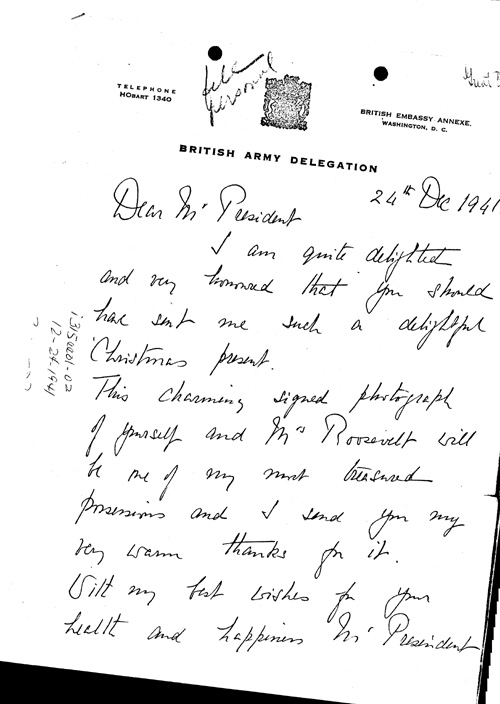 file
personal
TELEPHONE
HOBART 1340
BRITISH EMBASSY ANNEXE,
WASHINGTON, D. C.
BRITISH ARMY DELEGATION
24th Dec 1941
Dear Mr President
I am quite delighted
and very honoured that you should
have sent me such a delightful
Christmas present.
This charming signed photograph
of yourself and Mrs Roosevelt will
be one of my most treasured
possessions and I send you my
very warm thanks for it.
With my best wishes for your
health and happiness Mr President
i3150201-02
12-24-1941